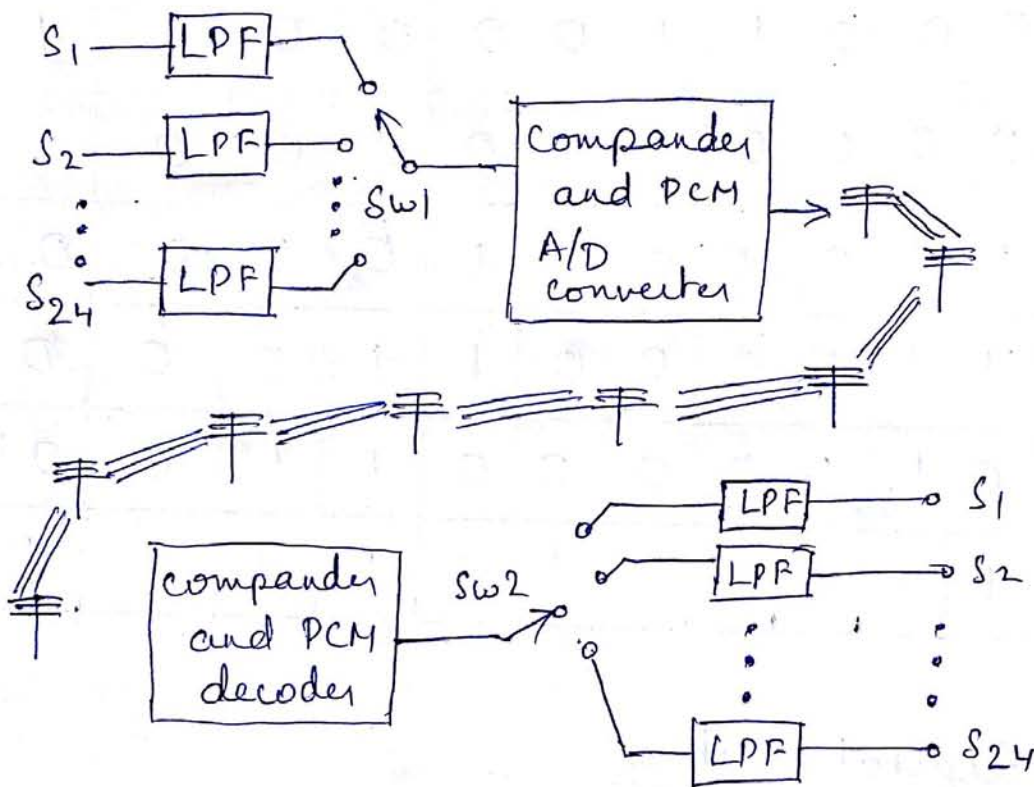 S1 LPF
S2 LPF
SW1
S24 LPF
Compander
and PCM
A/D
converter
compander
and PCM
decoder
SW2
LPF S1
LPF S2
LPF S24